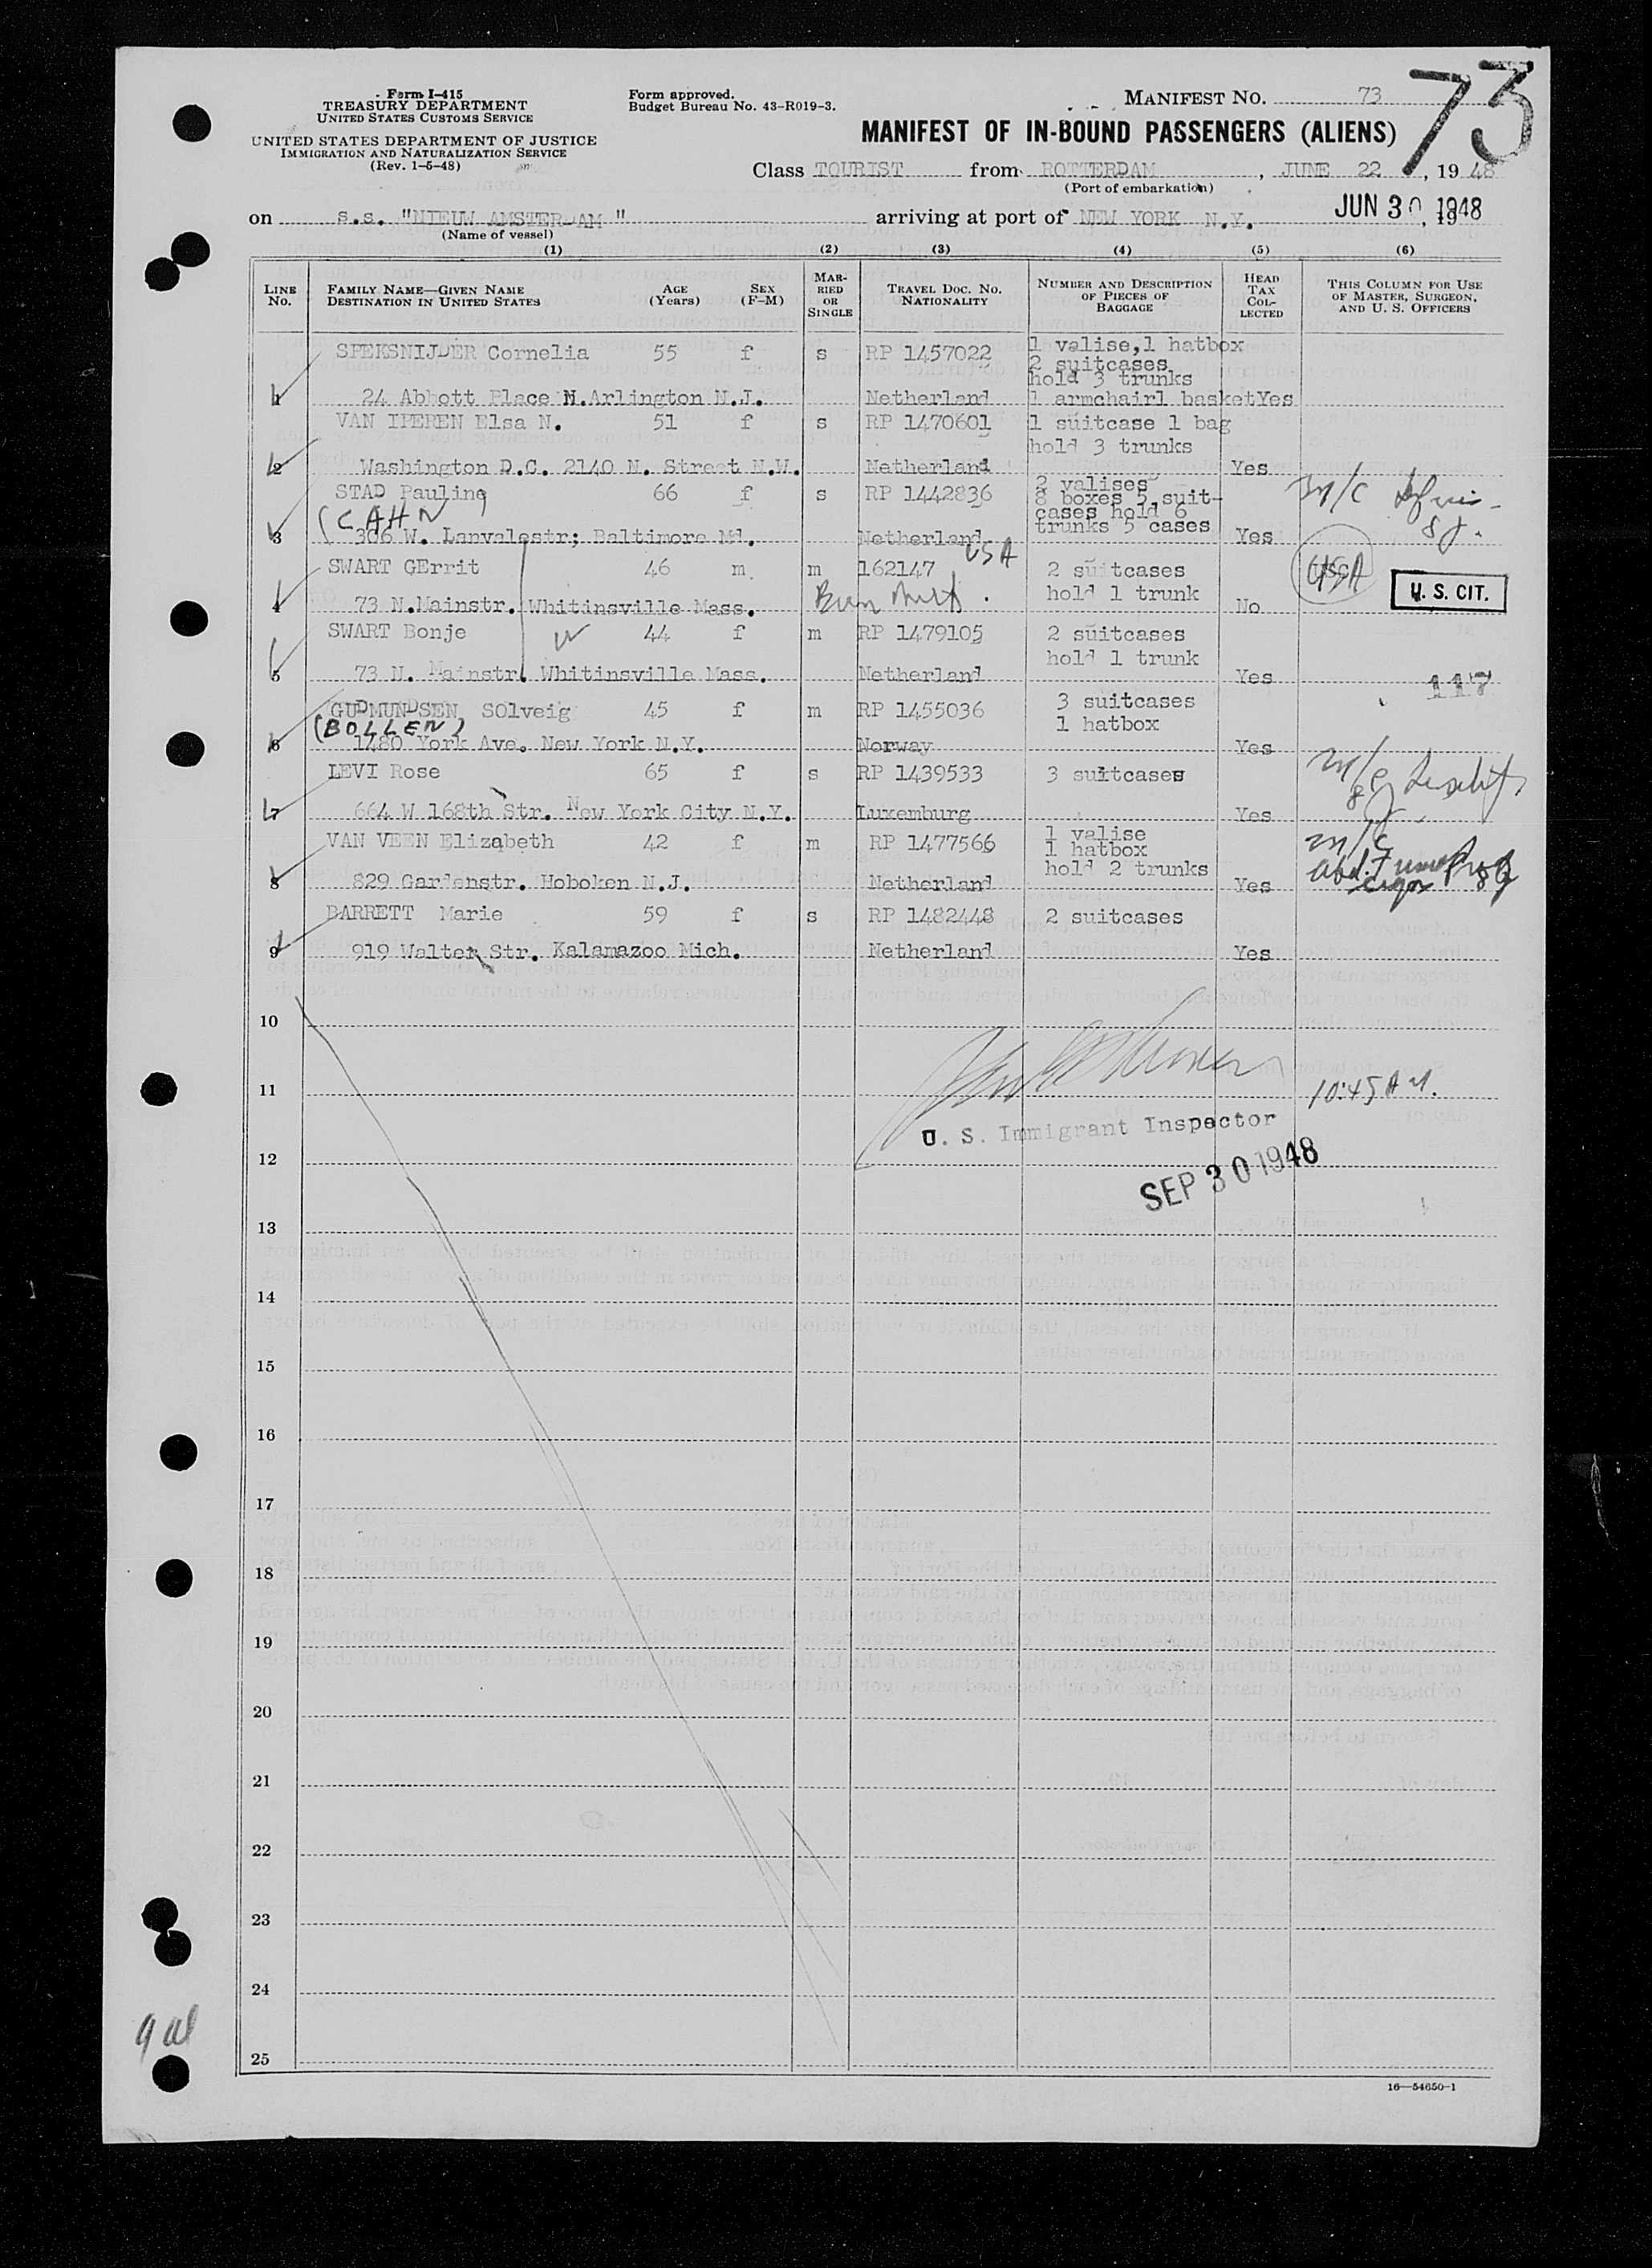 Form I-415
TREASURY DEPARTMENT
UNITED STATES CUSTOMS SERVICE
UNITED STATES DEPARTMENT OF JUSTICE
IMMIGRATION AND NATURALIZATION SERVICE
(Rev. 1-5-48)
Form approved.
Budget Bureau No. 43-R019-3.
MANIFEST NO. 73
73
MANIFEST OF IN-BOUND PASSENGERS (ALIENS)
Class TOURIST from ROTTERDAM, JUNE 22, 1948
(Port of embarkation)
on s.s. "NIEUW AMSTERDAM" arriving at port of NEW YORK N.Y. JUN 30 1948, 19
(Name of vessel)
(1) (2) (3) (4) (5) (6)
LINE No. FAMILY NAME—GIVEN NAME DESTINATION IN UNITED STATES AGE (Years) SEX (F-M) MARRIED OR SINGLE TRAVEL DOC. NO. NATIONALITY NUMBER AND DESCRIPTION OF PIECES OF BAGGAGE HEAD TAX COLLECTED THIS COLUMN FOR USE OF MASTER, SURGEON, AND U. S. OFFICERS
SPEKSNIJDER Cornelia 55 f s RP 1457022 1 valise,1 hatbox
2 suitcases
hold 3 trunks
1 24 Abbott Place N.Arlington N.J. Netherland 1 armchair1 basket Yes
VAN IPEREN Elsa N. 51 f s RP 1470601 1 suitcase 1 bag
hold 3 trunks
2 Washington D.C. 2140 N. Street N.W. Netherland Yes
STAD Pauline 66 f s RP 1442836 2 valises
8 boxes 5 suit-
cases hold 6
trunks 5 cases
(CAHN
3 306 W. Lanvalestr; Baltimore Md. Netherland Yes
M/C
USA
SWART GErrit 46 m m 162147 2 suitcases
hold 1 trunk
4 73 N.Mainstr. Whitinsville Mass. No
USA
U. S. CIT.
SWART Bonje 44 f m RP 1479105 2 suitcases
hold 1 trunk
5 73 N. Mainstr. Whitinsville Mass. Netherland Yes
117
GUDMUNDSEN SOlveig 45 f m RP 1455036 3 suitcases
1 hatbox
(BOLLEN)
6 1480 York Ave. New York N.Y. Norway Yes
LEVI Rose 65 f s RP 1439533 3 suitcases
7 664 W 168th Str. New York City N.Y. Luxemburg Yes
VAN VEEN Elizabeth 42 f m RP 1477566 1 valise
1 hatbox
hold 2 trunks
M/C
8 829 Gardenstr. Hoboken N.J. Netherland Yes
BARRETT Marie 59 f s RP 1482448 2 suitcases
9 919 Walter Str. Kalamazoo Mich. Netherland Yes
10
11
10:45 AM.
U. S. Immigrant Inspector
12
SEP 30 1948
13
14
15
16
17
18
19
20
21
22
23
24
25
16—54650-1